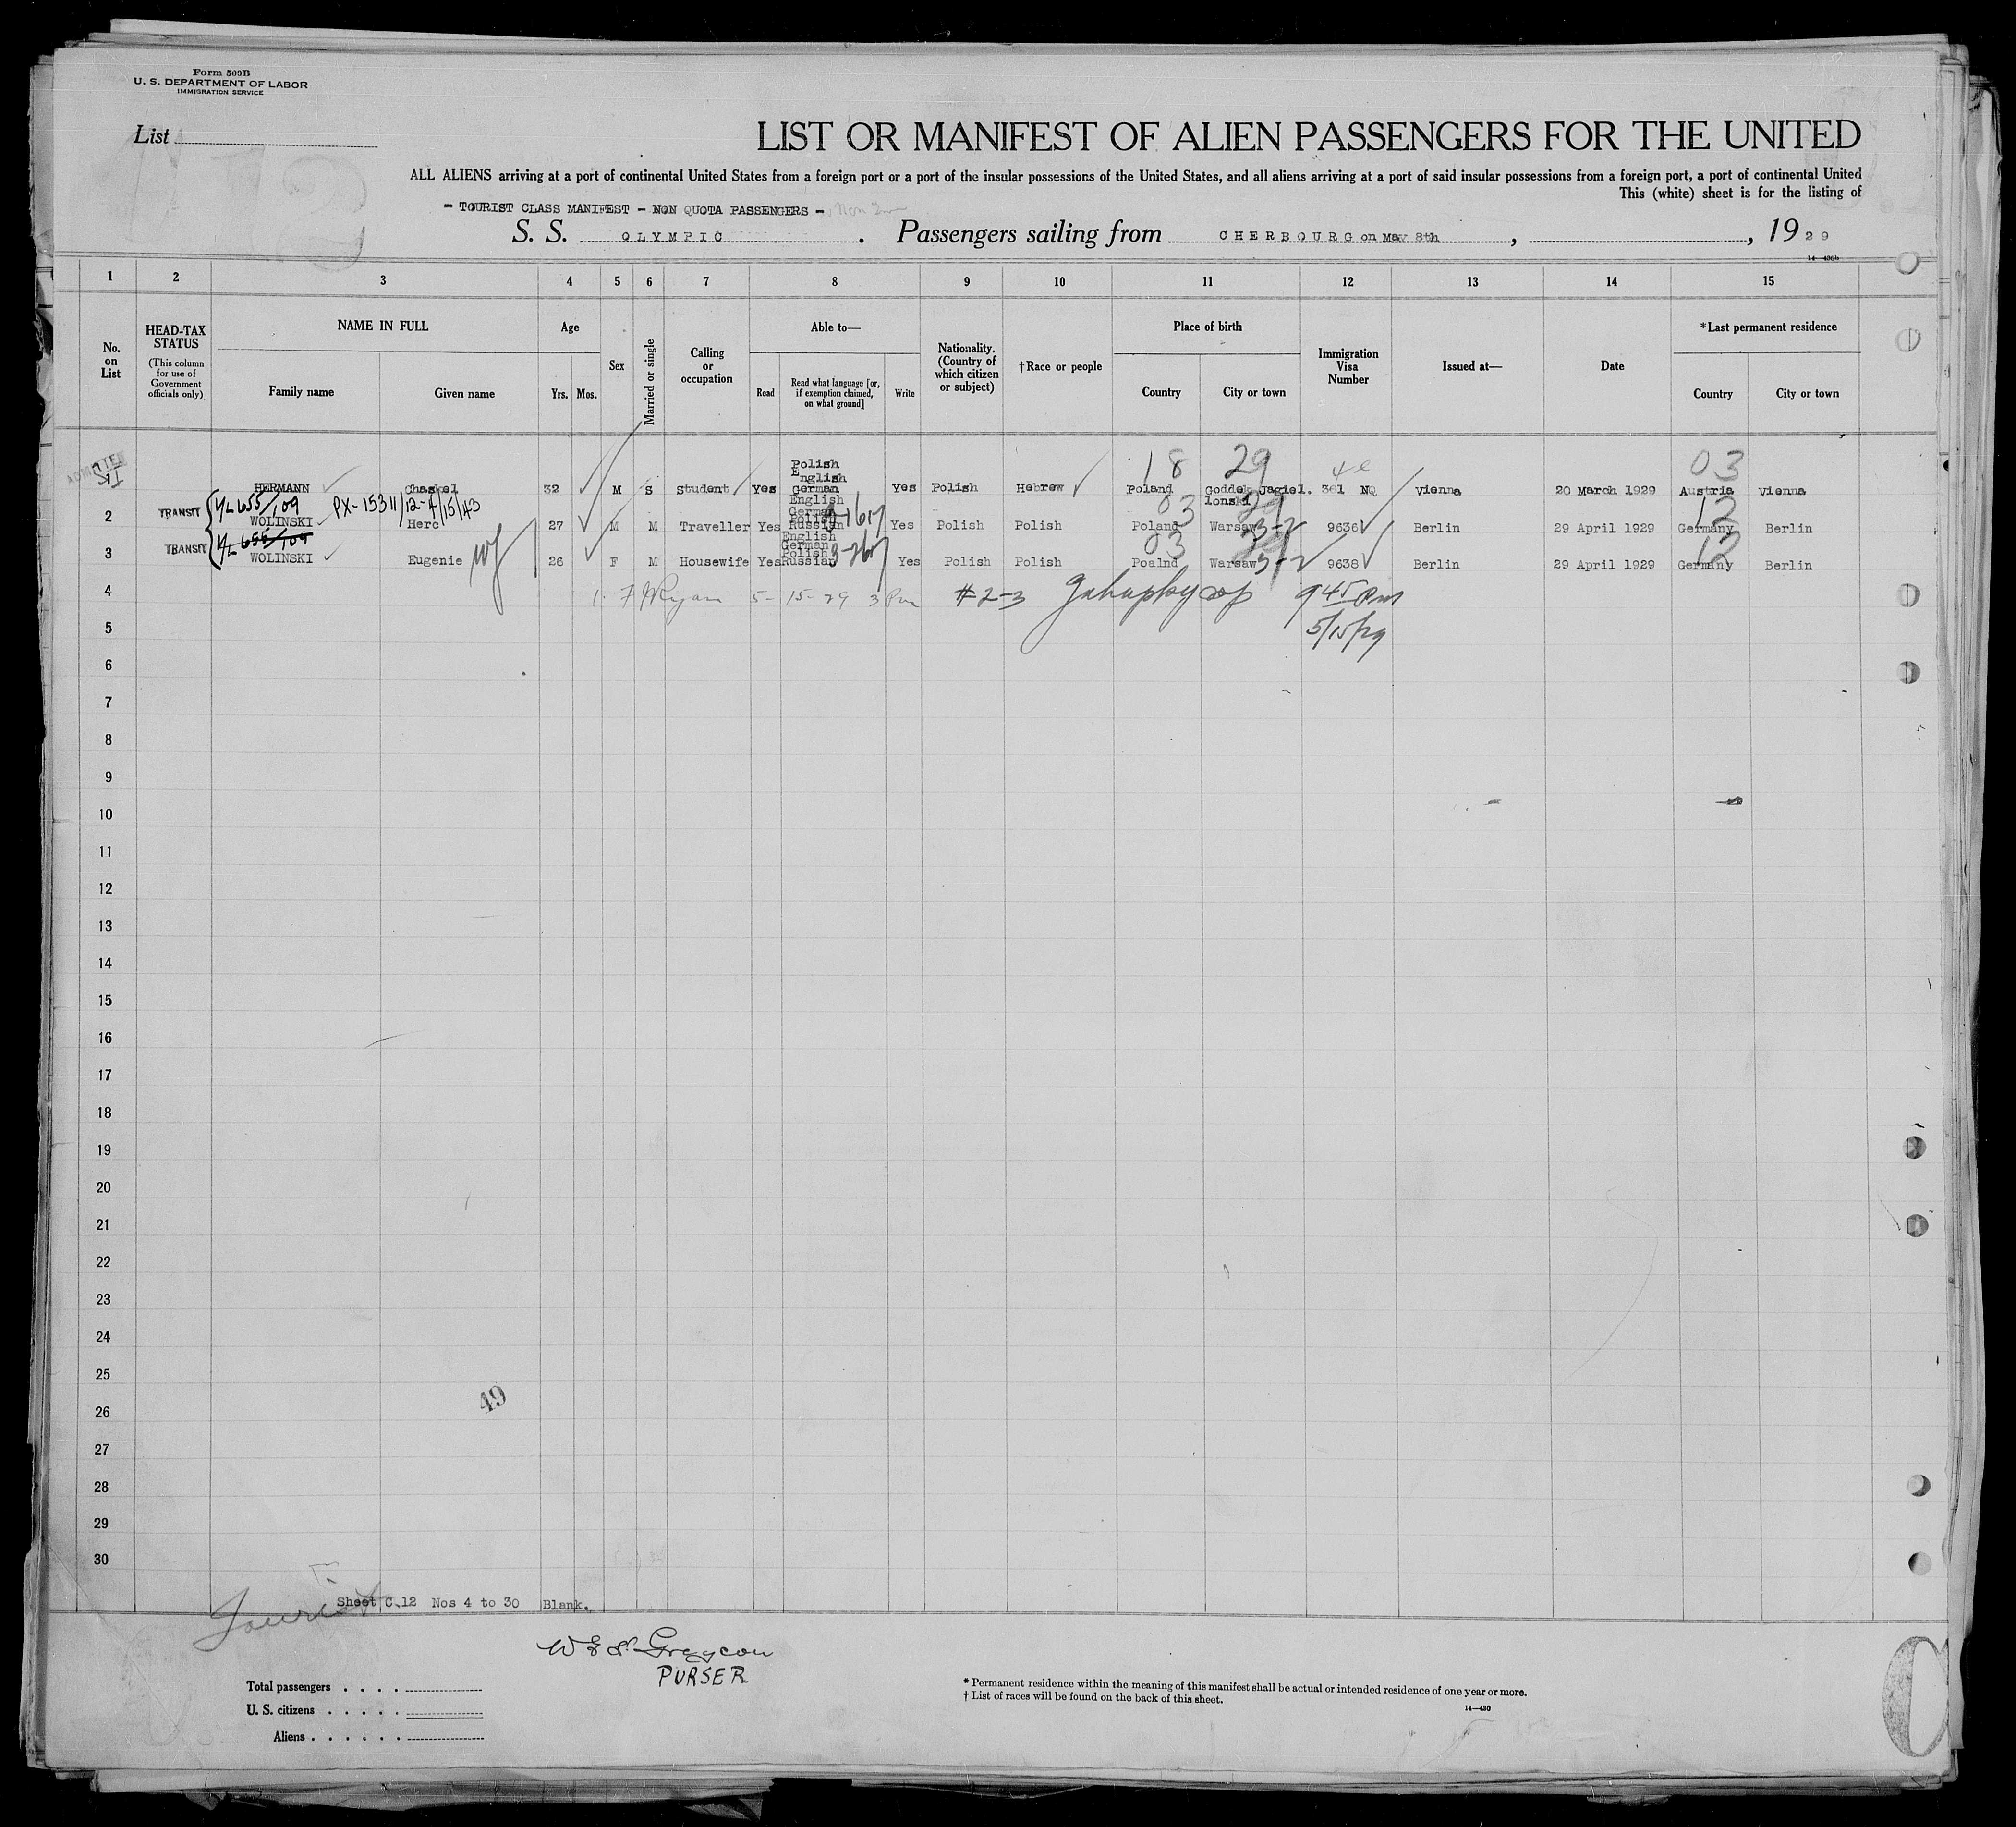 Form 500B
U. S. DEPARTMENT OF LABOR
IMMIGRATION SERVICE
List
LIST OR MANIFEST OF ALIEN PASSENGERS FOR THE UNITED
ALL ALIENS arriving at a port of continental United States from a foreign port or a port of the insular possessions of the United States, and all aliens arriving at a port of said insular possessions from a foreign port, a port of continental United
This (white) sheet is for the listing of
- TOURIST CLASS MANIFEST - NON QUOTA PASSENGERS -
S. S. OLYMPIC . Passengers sailing from CHERBOURG on May 8th , , 19 29
14—430b
1 2 3 4 5 6 7 8 9 10 11 12 13 14 15
No. on List
HEAD-TAX STATUS
(This column for use of Government officials only)
NAME IN FULL
Family name Given name
Age
Yrs. Mos.
Sex
Married or single
Calling or occupation
Able to—
Read
Read what language [or, if exemption claimed, on what ground]
Write
Nationality. (Country of which citizen or subject)
†Race or people
Place of birth
Country City or town
Immigration Visa Number
Issued at—
Date
*Last permanent residence
Country City or town
ADMITTED
18 29 03
1 HERMANN Chaskel 32 M S Student Yes Polish English German Yes Polish Hebrew Poland Goddek Jagiel. lonski 361 NQ Vienna 20 March 1929 Austria Vienna
655/109 PX-15311/12-4/15/43
03 29 12
2 TRANSIT WOLINSKI Herc 27 M M Traveller Yes English German Polish Russian Yes Polish Polish Poland Warsaw 3-2 9636 Berlin 29 April 1929 Germany Berlin
655/109
03 29 12
3 TRANSIT WOLINSKI Eugenie 26 F M Housewife Yes English German Polish Russian Yes Polish Polish Poalnd Warsaw 3-2 9638 Berlin 29 April 1929 Germany Berlin
4 1. F J Ryan 5-15-29 3 Pm #2-3 9 45 Pm
5 5/15/29
6
7
8
9
10
11
12
13
14
15
16
17
18
19
20
21
22
23
24
25
49
26
27
28
29
30
Tourist
Sheet C.12 Nos 4 to 30 Blank.
PURSER
Total passengers . . . .
U. S. citizens . . . . .
Aliens . . . . . .
* Permanent residence within the meaning of this manifest shall be actual or intended residence of one year or more.
† List of races will be found on the back of this sheet.
14—430